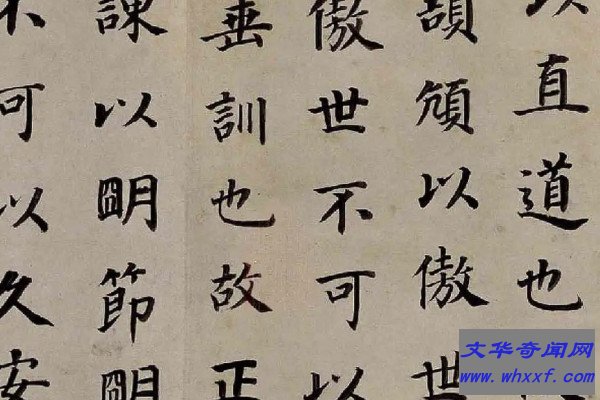 以直道也
頡頏以傲世
傲世不可以
垂訓也故正
諫以朙節朙
不可以久安
文华奇闻网
www.whxxf.com